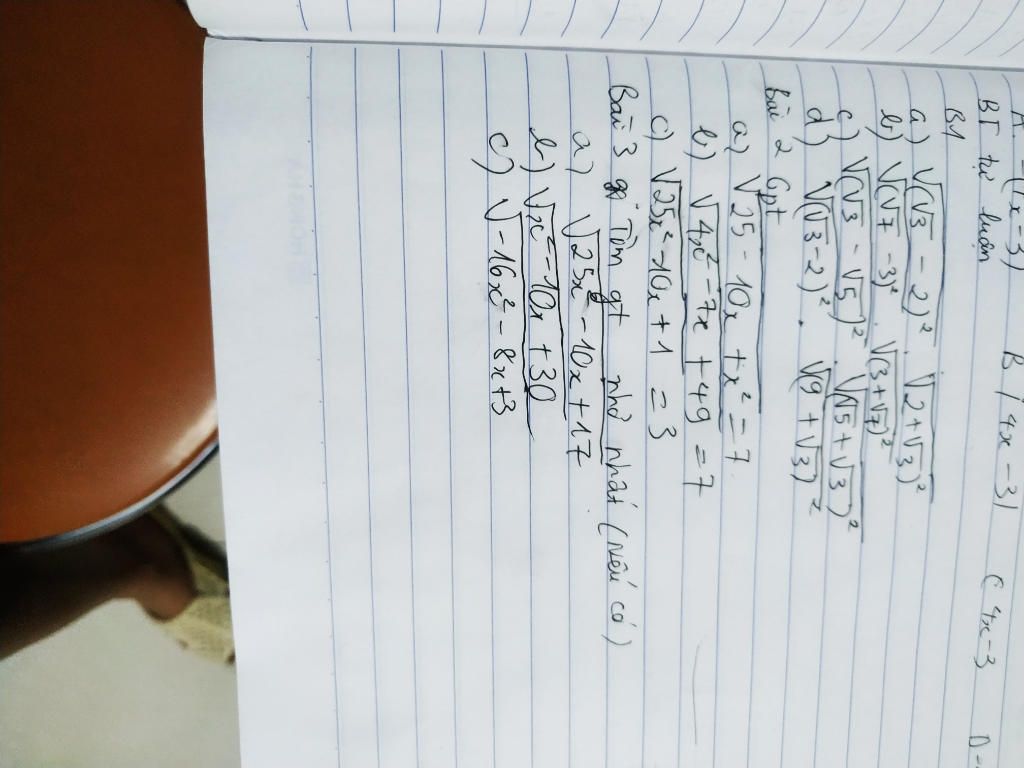 A -(4x-3) B |4x-3| C 4x-3 D
BT tự luận
B1
a) √(√3 - 2)² . √(2+√3)²
b) √(√7 - 3)² . √(3+√7)²
c) √(√3 - √5)² . √(√5+√3)²
d) √(√3-2)² . √(9+√3)²
Bài 2 Gpt
a) √25 - 10x + x² = 7
b) √4x² - 7x + 49 = 7
c) √25x² - 10x + 1 = 3
Bài 3 Tìm gt nhỏ nhất (nếu có)
a) √25x² - 10x + 17
b) √x² - 10x + 30
c) √-16x² - 8x+3